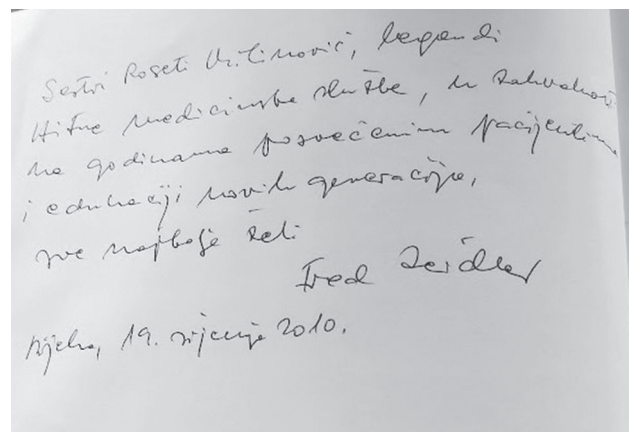 Sestri Roseti Vrtinović, legendi
Hitne medicinske službe, u zahvalnost
na godinama posvećenim pacijentima
i edukaciji novih generacija,
sve najbolje želi
Fred Zeidler
Rijeka, 19. siječnja 2010.